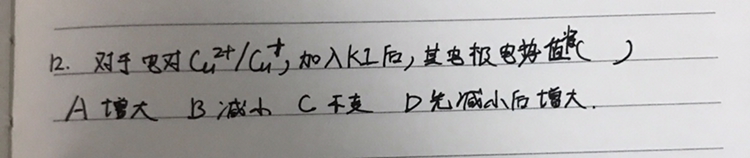 12. 对于电对Cu²⁺/Cu⁺,加入KI后,其电极电势值将( )
A 增大 B 减小 C 不变 D 先减小后增大.